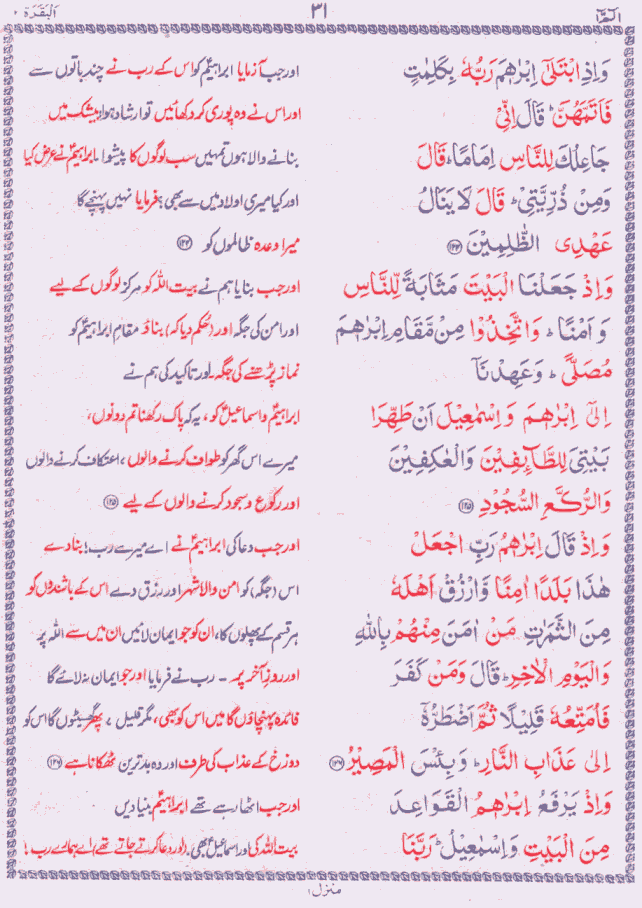 الٓمّٓ ۱ ۳۱ اَلْبَقَرَة ۲
وَاِذِ ابْتَلٰۤى اِبْرٰهٖمَ رَبُّهٗ بِكَلِمٰتٍ اور جب آزمایا ابراہیمؑ کو اس کے رب نے چند باتوں سے
فَاَتَمَّهُنَّ ؕ قَالَ اِنِّیْ اور اس نے وہ پوری کر دکھائیں تو ارشاد ہوا بیشک میں
جَاعِلُكَ لِلنَّاسِ اِمَامًا ؕ قَالَ بنانے والا ہوں تمہیں سب لوگوں کا پیشوا۔ ابراہیمؑ نے عرض کیا
وَمِنْ ذُرِّیَّتِیْ ؕ قَالَ لَا یَنَالُ اور کیا میری اولاد میں سے بھی؟ فرمایا نہیں پہنچے گا
عَهْدِی الظّٰلِمِیْنَ ﴿۱۲۴﴾ میرا وعدہ ظالموں کو ﴿۱۲۴﴾
وَاِذْ جَعَلْنَا الْبَیْتَ مَثَابَةً لِّلنَّاسِ اور جب بنایا ہم نے بیت اللہ کو مرکز لوگوں کے لیے
وَ اَمْنًا ؕ وَاتَّخِذُوْا مِنْ مَّقَامِ اِبْرٰهٖمَ اور امن کی جگہ اور (حکم دیا کہ) بناؤ مقامِ ابراہیمؑ کو
مُصَلًّی ؕ وَعَهِدْنَاۤ نماز پڑھنے کی جگہ۔ اور تاکید کی ہم نے
اِلٰۤی اِبْرٰهٖمَ وَاِسْمٰعِیْلَ اَنْ طَهِّرَا ابراہیمؑ و اسماعیلؑ کو، یہ کہ پاک رکھنا تم دونوں،
بَیْتِیَ لِلطَّآئِفِیْنَ وَالْعٰكِفِیْنَ میرے اس گھر کو طواف کرنے والوں، اعتکاف کرنے والوں
وَالرُّكَّعِ السُّجُوْدِ ﴿۱۲۵﴾ اور رکوع و سجود کرنے والوں کے لیے ﴿۱۲۵﴾
وَاِذْ قَالَ اِبْرٰهٖمُ رَبِّ اجْعَلْ اور جب دعا کی ابراہیمؑ نے اے میرے رب! بنا دے
هٰذَا بَلَدًا اٰمِنًا وَّارْزُقْ اَهْلَهٗ اس (جگہ) کو امن والا شہر اور رزق دے اس کے باشندوں کو
مِنَ الثَّمَرٰتِ مَنْ اٰمَنَ مِنْهُمْ بِاللّٰهِ ہر قسم کے پھلوں کا، ان کو جو ایمان لائیں ان میں سے اللہ پر
وَالْیَوْمِ الْاٰخِرِ ؕ قَالَ وَمَنْ كَفَرَ اور روزِ آخر پر۔ رب نے فرمایا اور جو ایمان نہ لائے گا
فَاُمَتِّعُهٗ قَلِیْلًا ثُمَّ اَضْطَرُّهٗۤ فائدہ پہنچاؤں گا میں اس کو بھی، مگر قلیل، پھر گھسیٹوں گا اس کو
اِلٰی عَذَابِ النَّارِ ؕ وَبِئْسَ الْمَصِیْرُ ﴿۱۲۶﴾ دوزخ کے عذاب کی طرف اور وہ بدترین ٹھکانا ہے ﴿۱۲۶﴾
وَاِذْ یَرْفَعُ اِبْرٰهٖمُ الْقَوَاعِدَ اور جب اٹھا رہے تھے ابراہیمؑ بنیادیں
مِنَ الْبَیْتِ وَاِسْمٰعِیْلُ ؕ رَبَّنَا بیت اللہ کی اور اسماعیلؑ بھی۔ (اور دعا کرتے جاتے تھے) اے ہمارے رب!
منزل ۱